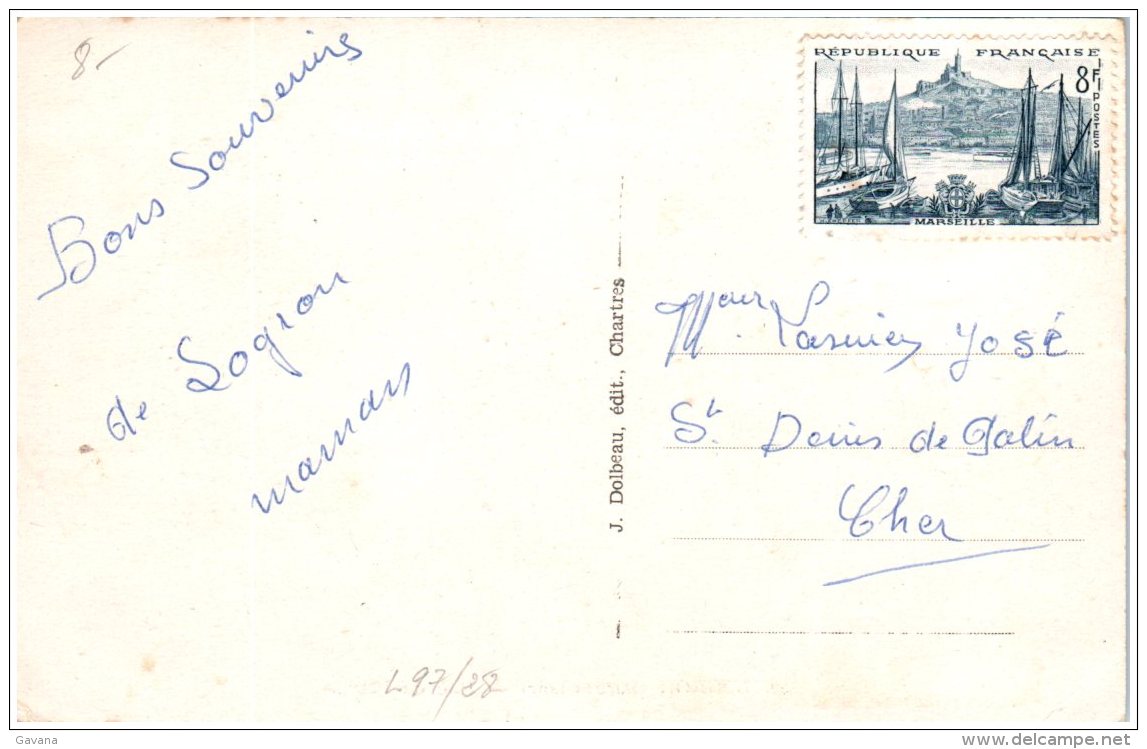 8-
Bons Souvenirs
de Logron
maman
J. Dolbeau, édit., Chartres
RÉPUBLIQUE FRANÇAISE
8F
POSTES
MARSEILLE
José
St Denis de Palin
Cher
L97/28
Gavana
www.delcampe.net